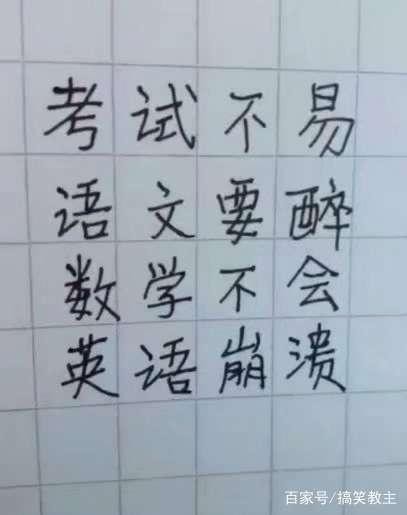 考试不易
语文要醉
数学不会
英语崩溃
百家号/搞笑教主